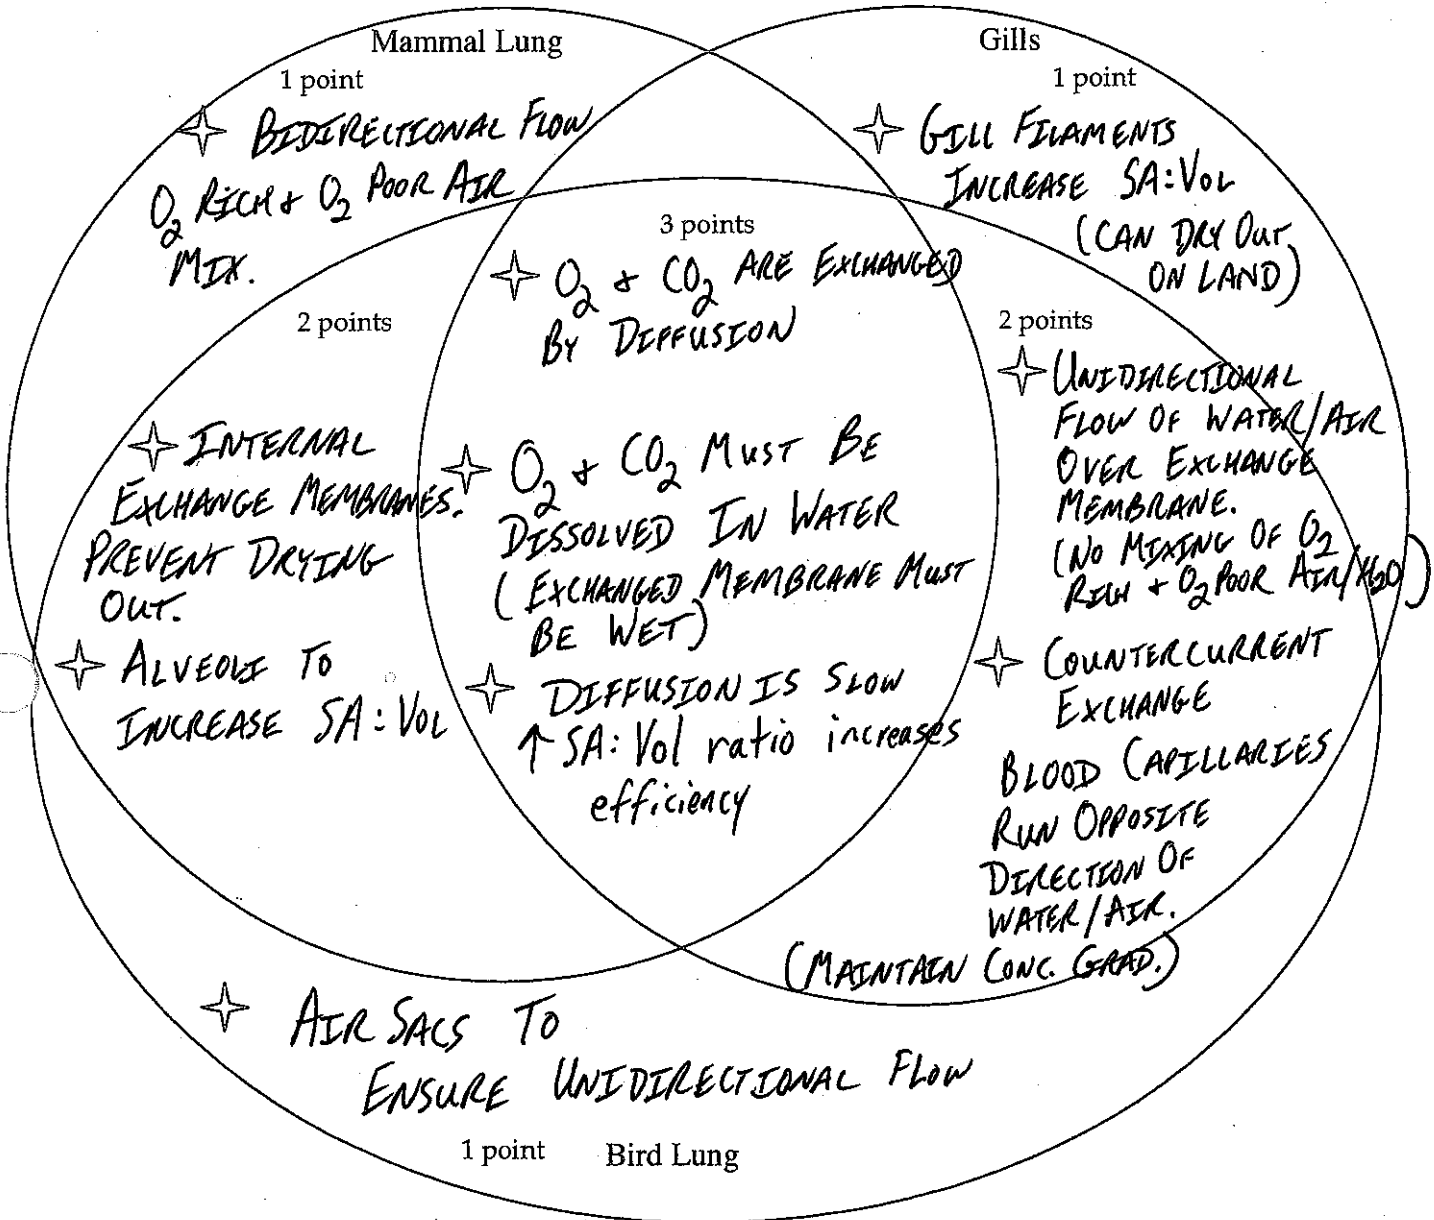 Mammal Lung
1 point
BIDIRECTIONAL FLOW
O₂ RICH + O₂ POOR AIR
MIX.
Gills
1 point
GILL FILAMENTS
INCREASE SA:VOL
(CAN DRY OUT
ON LAND)
3 points
O₂ + CO₂ ARE EXCHANGED
BY DIFFUSION
O₂ + CO₂ MUST BE
DISSOLVED IN WATER
(EXCHANGED MEMBRANE MUST
BE WET)
DIFFUSION IS SLOW
↑ SA:Vol ratio increases
efficiency
2 points
INTERNAL
EXCHANGE MEMBRANES.
PREVENT DRYING
OUT.
ALVEOLI TO
INCREASE SA:VOL
2 points
UNIDIRECTIONAL
FLOW OF WATER/AIR
OVER EXCHANGE
MEMBRANE.
(NO MIXING OF O₂
RICH + O₂ POOR AIR/H₂O)
COUNTERCURRENT
EXCHANGE
BLOOD CAPILLARIES
RUN OPPOSITE
DIRECTION OF
WATER/AIR.
(MAINTAIN CONC. GRAD.)
AIR SACS TO
ENSURE UNIDIRECTIONAL FLOW
1 point
Bird Lung